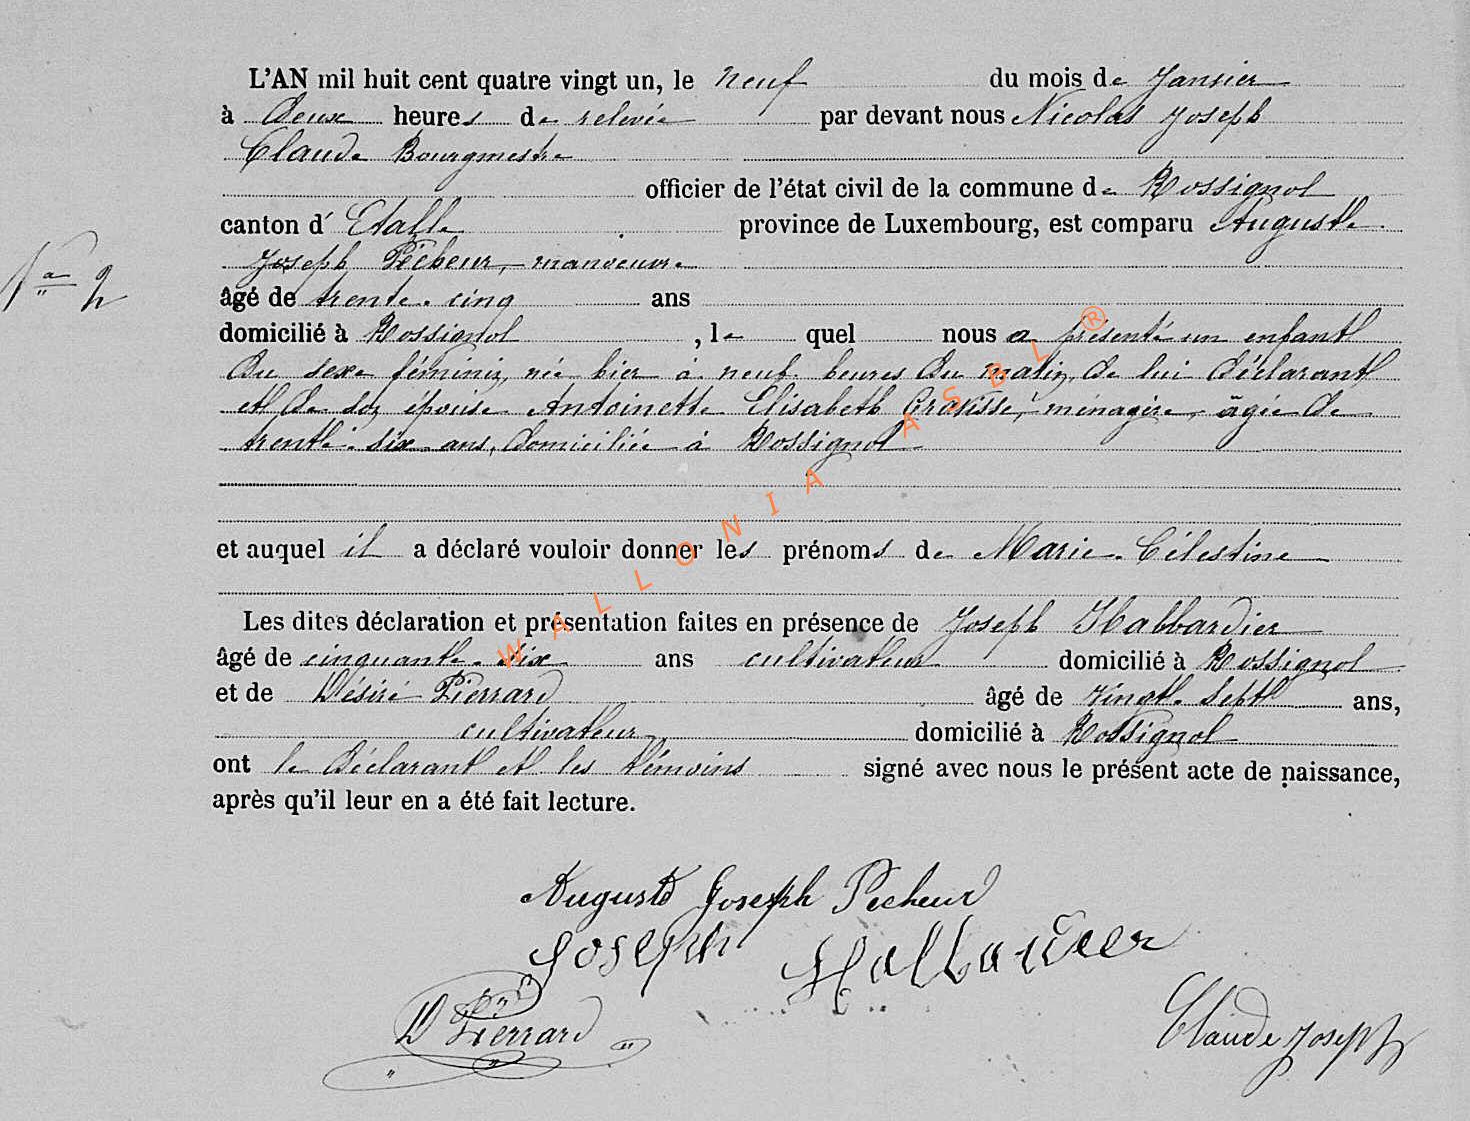 L'AN mil huit cent quatre vingt un, le neuf du mois de Janvier
à deux heures de relevée par devant nous Nicolas Joseph
Claude Bourgmestre
officier de l'état civil de la commune de Rossignol
canton d' Etalle province de Luxembourg, est comparu Auguste
Joseph Pécheur, manoeuvre
N° 2
âgé de trente-cinq ans
domicilié à Rossignol, le quel nous a présenté un enfant
du sexe féminin, née hier à neuf heures du matin, de lui déclarant
et de son épouse Antoinette Elisabeth ménagère, âgée de
trente-six ans, domiciliée à Rossignol
et auquel il a déclaré vouloir donner les prénoms de Marie-Célestine
Les dites déclaration et présentation faites en présence de Joseph Habbardier
âgé de cinquante-six ans cultivateur domicilié à Rossignol
et de Désiré Pierrard âgé de vingt-sept ans,
cultivateur domicilié à Rossignol
ont le déclarant et les témoins signé avec nous le présent acte de naissance,
après qu'il leur en a été fait lecture.
WALLONIA ASBL ®
Auguste Joseph Pecheur
Joseph Habbardier
D Pierrard
Claude Joseph